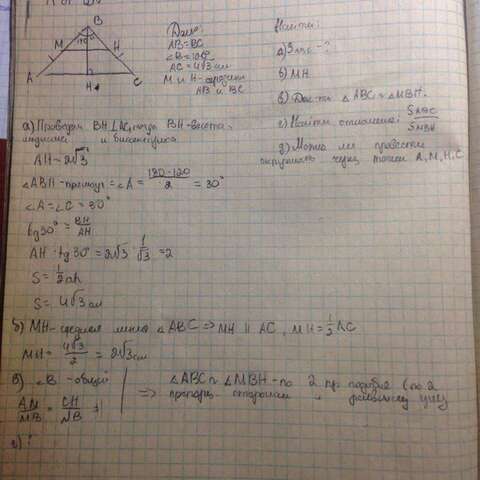 B
120°
M
H
A
H₁
C
Дано:
AB=BC
∠B=120°
AC=4√3 см
M и H - середины
AB и BC
Найти:
а) S ABC - ?
б) MH
в) Док-ть △ABC ~ △MBH.
г) Найти отношение S ABC / S MBH
д) Можно ли провести
окружность через точки A, M, H, C
а) Проведем BH ⊥ AC, тогда BH - высота,
медиана и биссектриса
AH = 2√3
△ABH - прямоуг ∠A = (180-120)/2 = 30°
∠A = ∠C = 30°
tg30° = BH/AH
AH · tg30° = 2√3 · 1/√3 = 2
S = 1/2 ah
S = 4√3 см
б) MH - средняя линия △ABC ⇒ MH ∥ AC, MH = 1/2 AC
MH = 4√3/2 = 2√3 см
в) ∠B - общий
⇒ △ABC ~ △MBH - по 2 пр. подобия (по 2
пропорц. сторонам и равному углу
г) ?